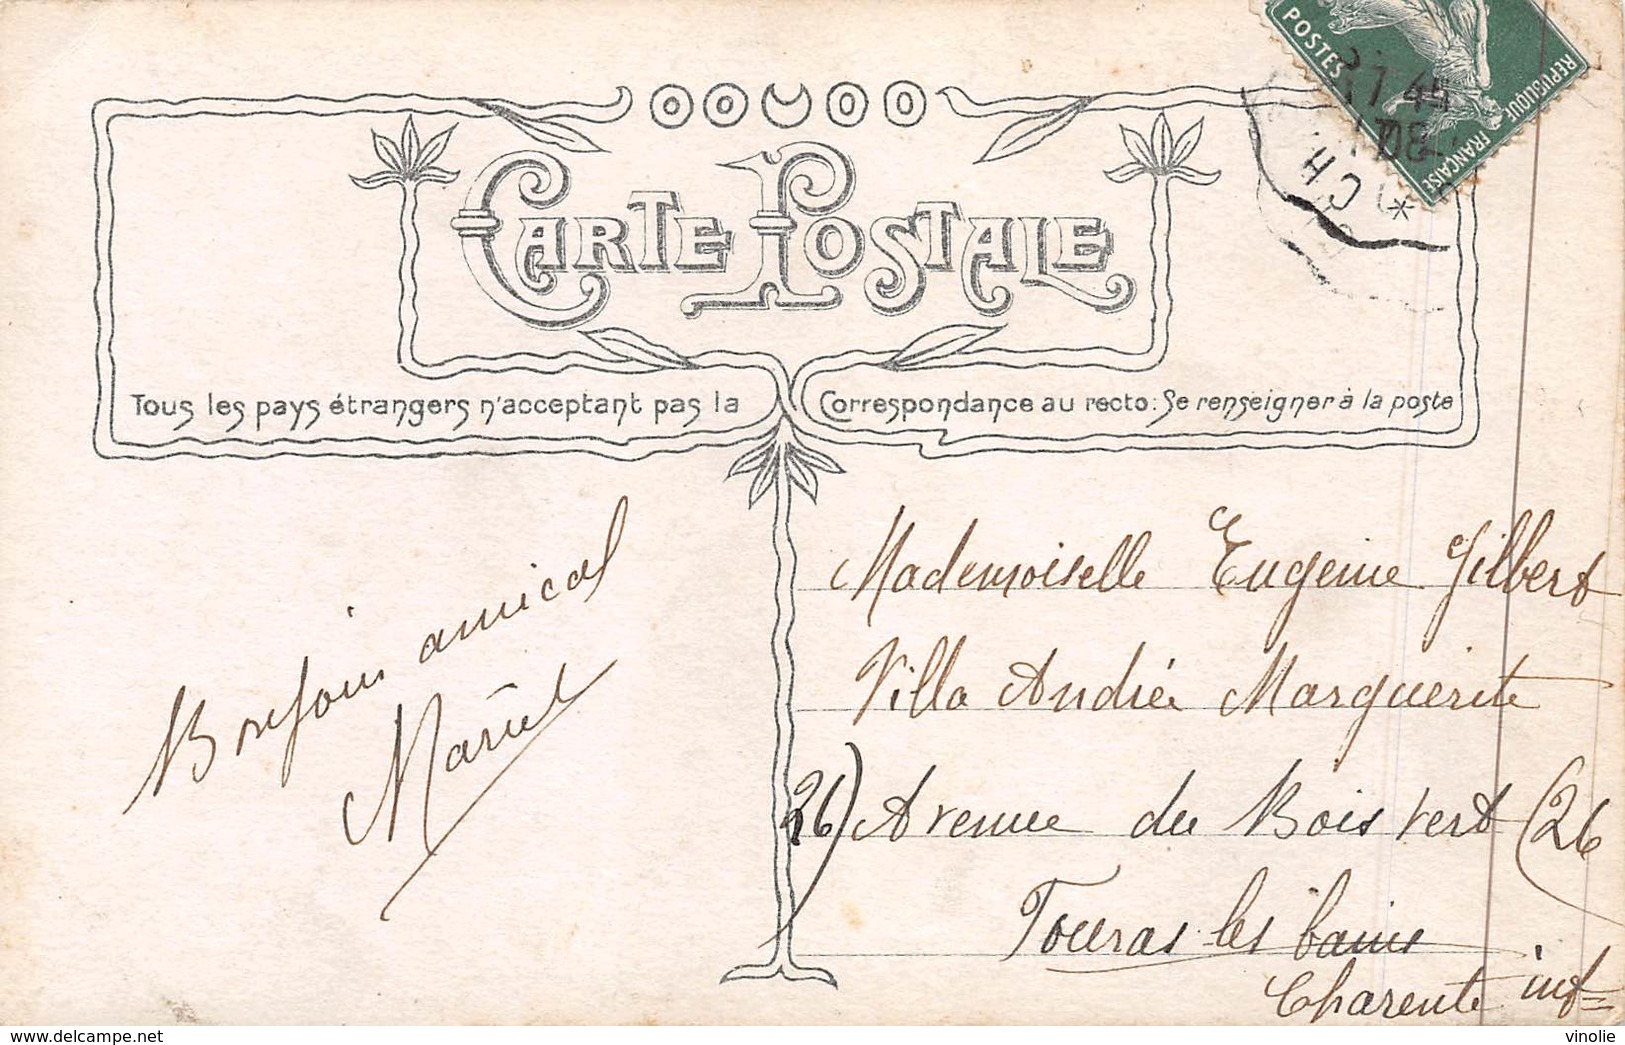 CARTE POSTALE
POSTES
REPUBLIQUE FRANÇAISE
Tous les pays étrangers n'acceptant pas la Correspondance au recto: Se renseigner à la poste
Bonjour amical
Mademoiselle Eugenie Gilbert
Villa Andrée Marguerite
26) Avenue du Bois Vert (26
Fouras les bains
Charente inf=
vinolie